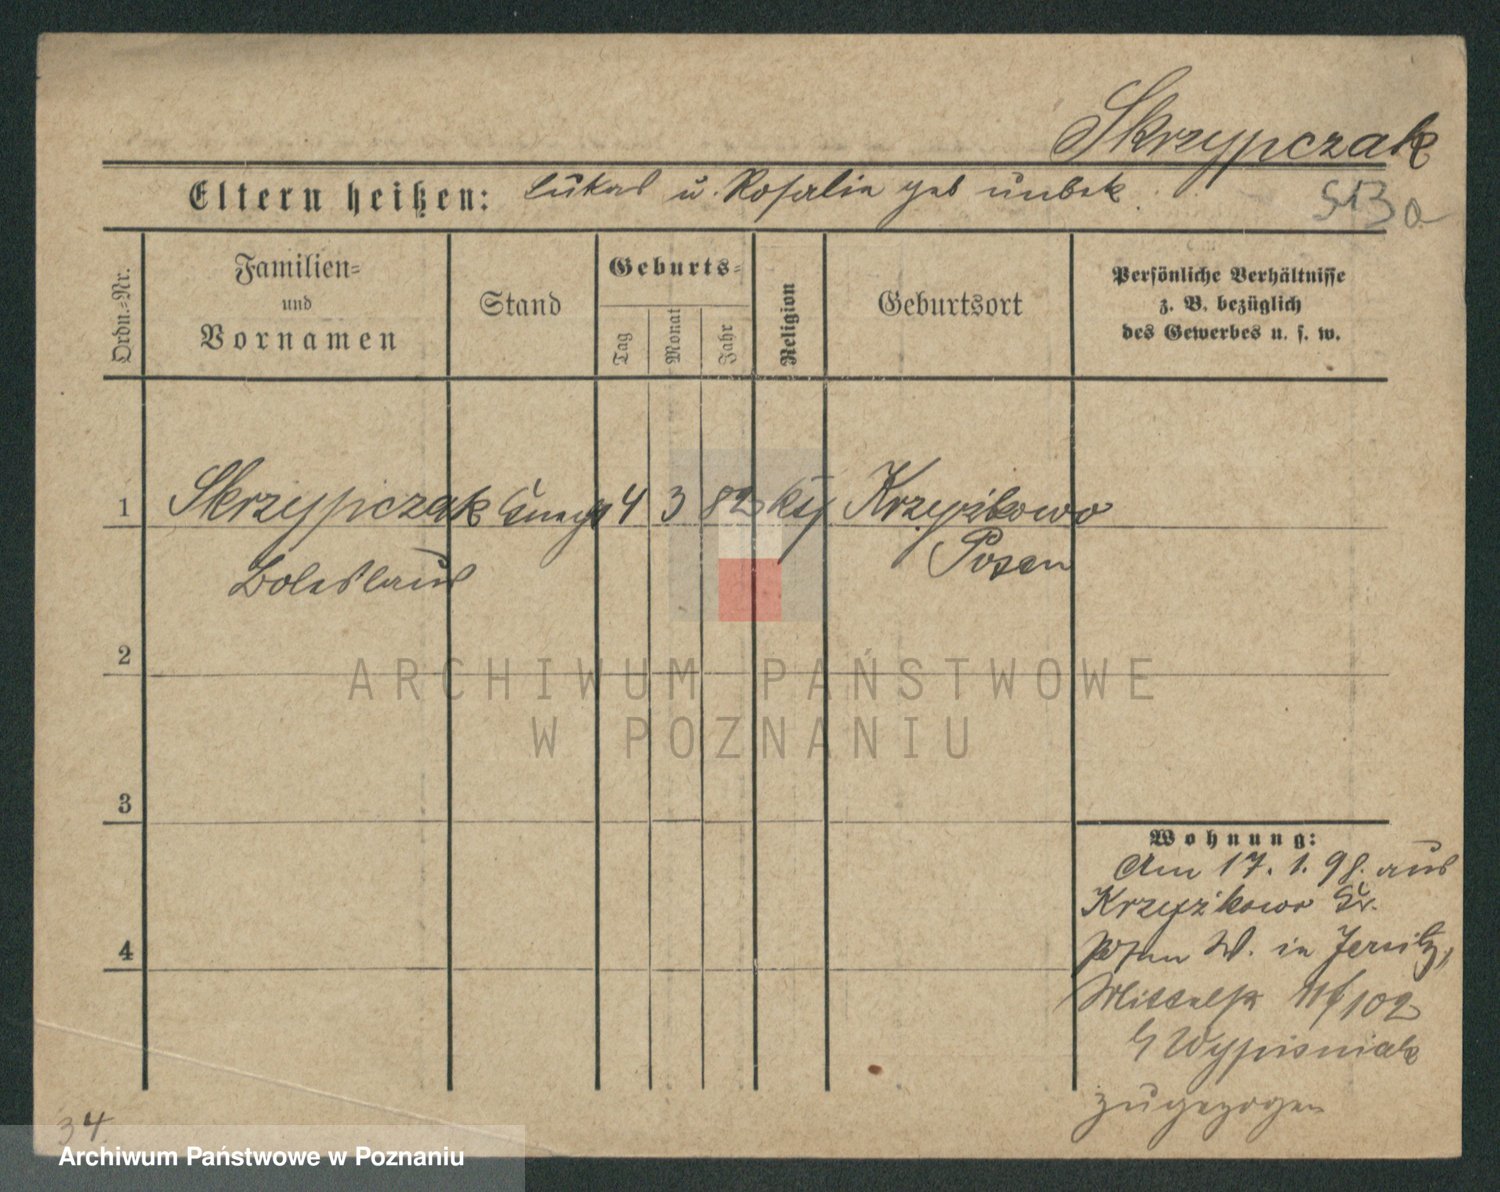 Skrzypczak
Eltern heißen: Lukas u. Rosalie geb unbek.
Ordn.=Nr.
Familien=
und
Vornamen
Stand
Geburts=
Tag
Monat
Jahr
Religion
Geburtsort
Persönliche Verhältnisse
z. B. bezüglich
des Gewerbes u. s. w.
1 Skrzypczak 4 3 82 Krzyżkowo
Boleslaus Posen
2
ARCHIWUM PAŃSTWOWE
W POZNANIU
3
Wohnung:
Am 17. 1. 98. aus
Krzyżkowo Kr.
Posen W. in Jersitz,
Mittelstr 102
Wypisniak
zugezogen
4
34
Archiwum Państwowe w Poznaniu